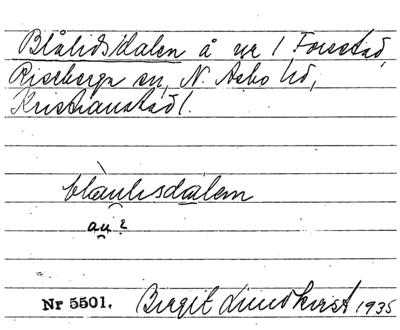 Blålidsdalen å nr 1 Forestad,
Riseberga sn, N. Åsbo hd,
Kristianstad l.
blàulisdalem
au?
Nr 5501. Birgit Lundkvist 1935